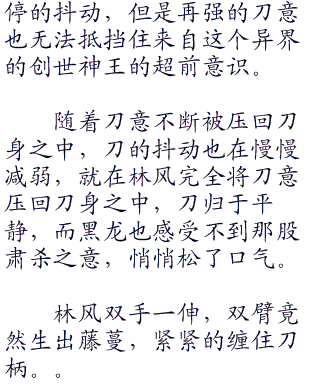 停的抖动，但是再强的刀意
也无法抵挡住来自这个异界
的创世神王的超前意识。
随着刀意不断被压回刀
身之中，刀的抖动也在慢慢
减弱，就在林风完全将刀意
压回刀身之中，刀归于平
静，而黑龙也感受不到那股
肃杀之意，悄悄松了口气。
林风双手一伸，双臂竟
然生出藤蔓，紧紧的缠住刀
柄。。